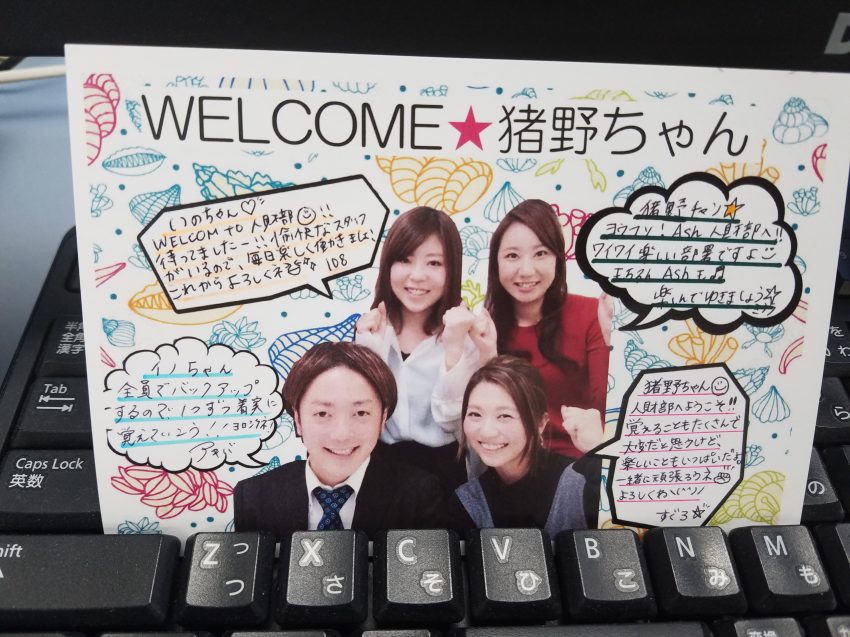 WELCOME★猪野ちゃん
いのちゃん♡
WELCOM to 人財部☺!!
待ってましたー!!愉快なスタッフ
がいるので、毎日楽しく働きましょ!
これからよろしくネ
108
猪野チャン☆
ヨウコソ!Ash人財部へ!!
ワイワイ楽しい部署ですよ☺
Ash
楽しんでゆきましょう☆
イノちゃん
全員でバックアップ
するので1つずつ着実に
覚えていこう!!ヨロシクネ
猪野ちゃん☺
人財部へようこそ!!
覚えることもたくさんで
大変だと思うけど、
楽しいこともいっぱいだよ
一緒に頑張ろうネ
よろしくね\(^^)/
すぐろ☆
D
半角/
全角
漢字
Tab
Caps Lock
英数
Shift
Z っ つ
X さ
C そ
V ひ
B こ
N み
M も
の
ら